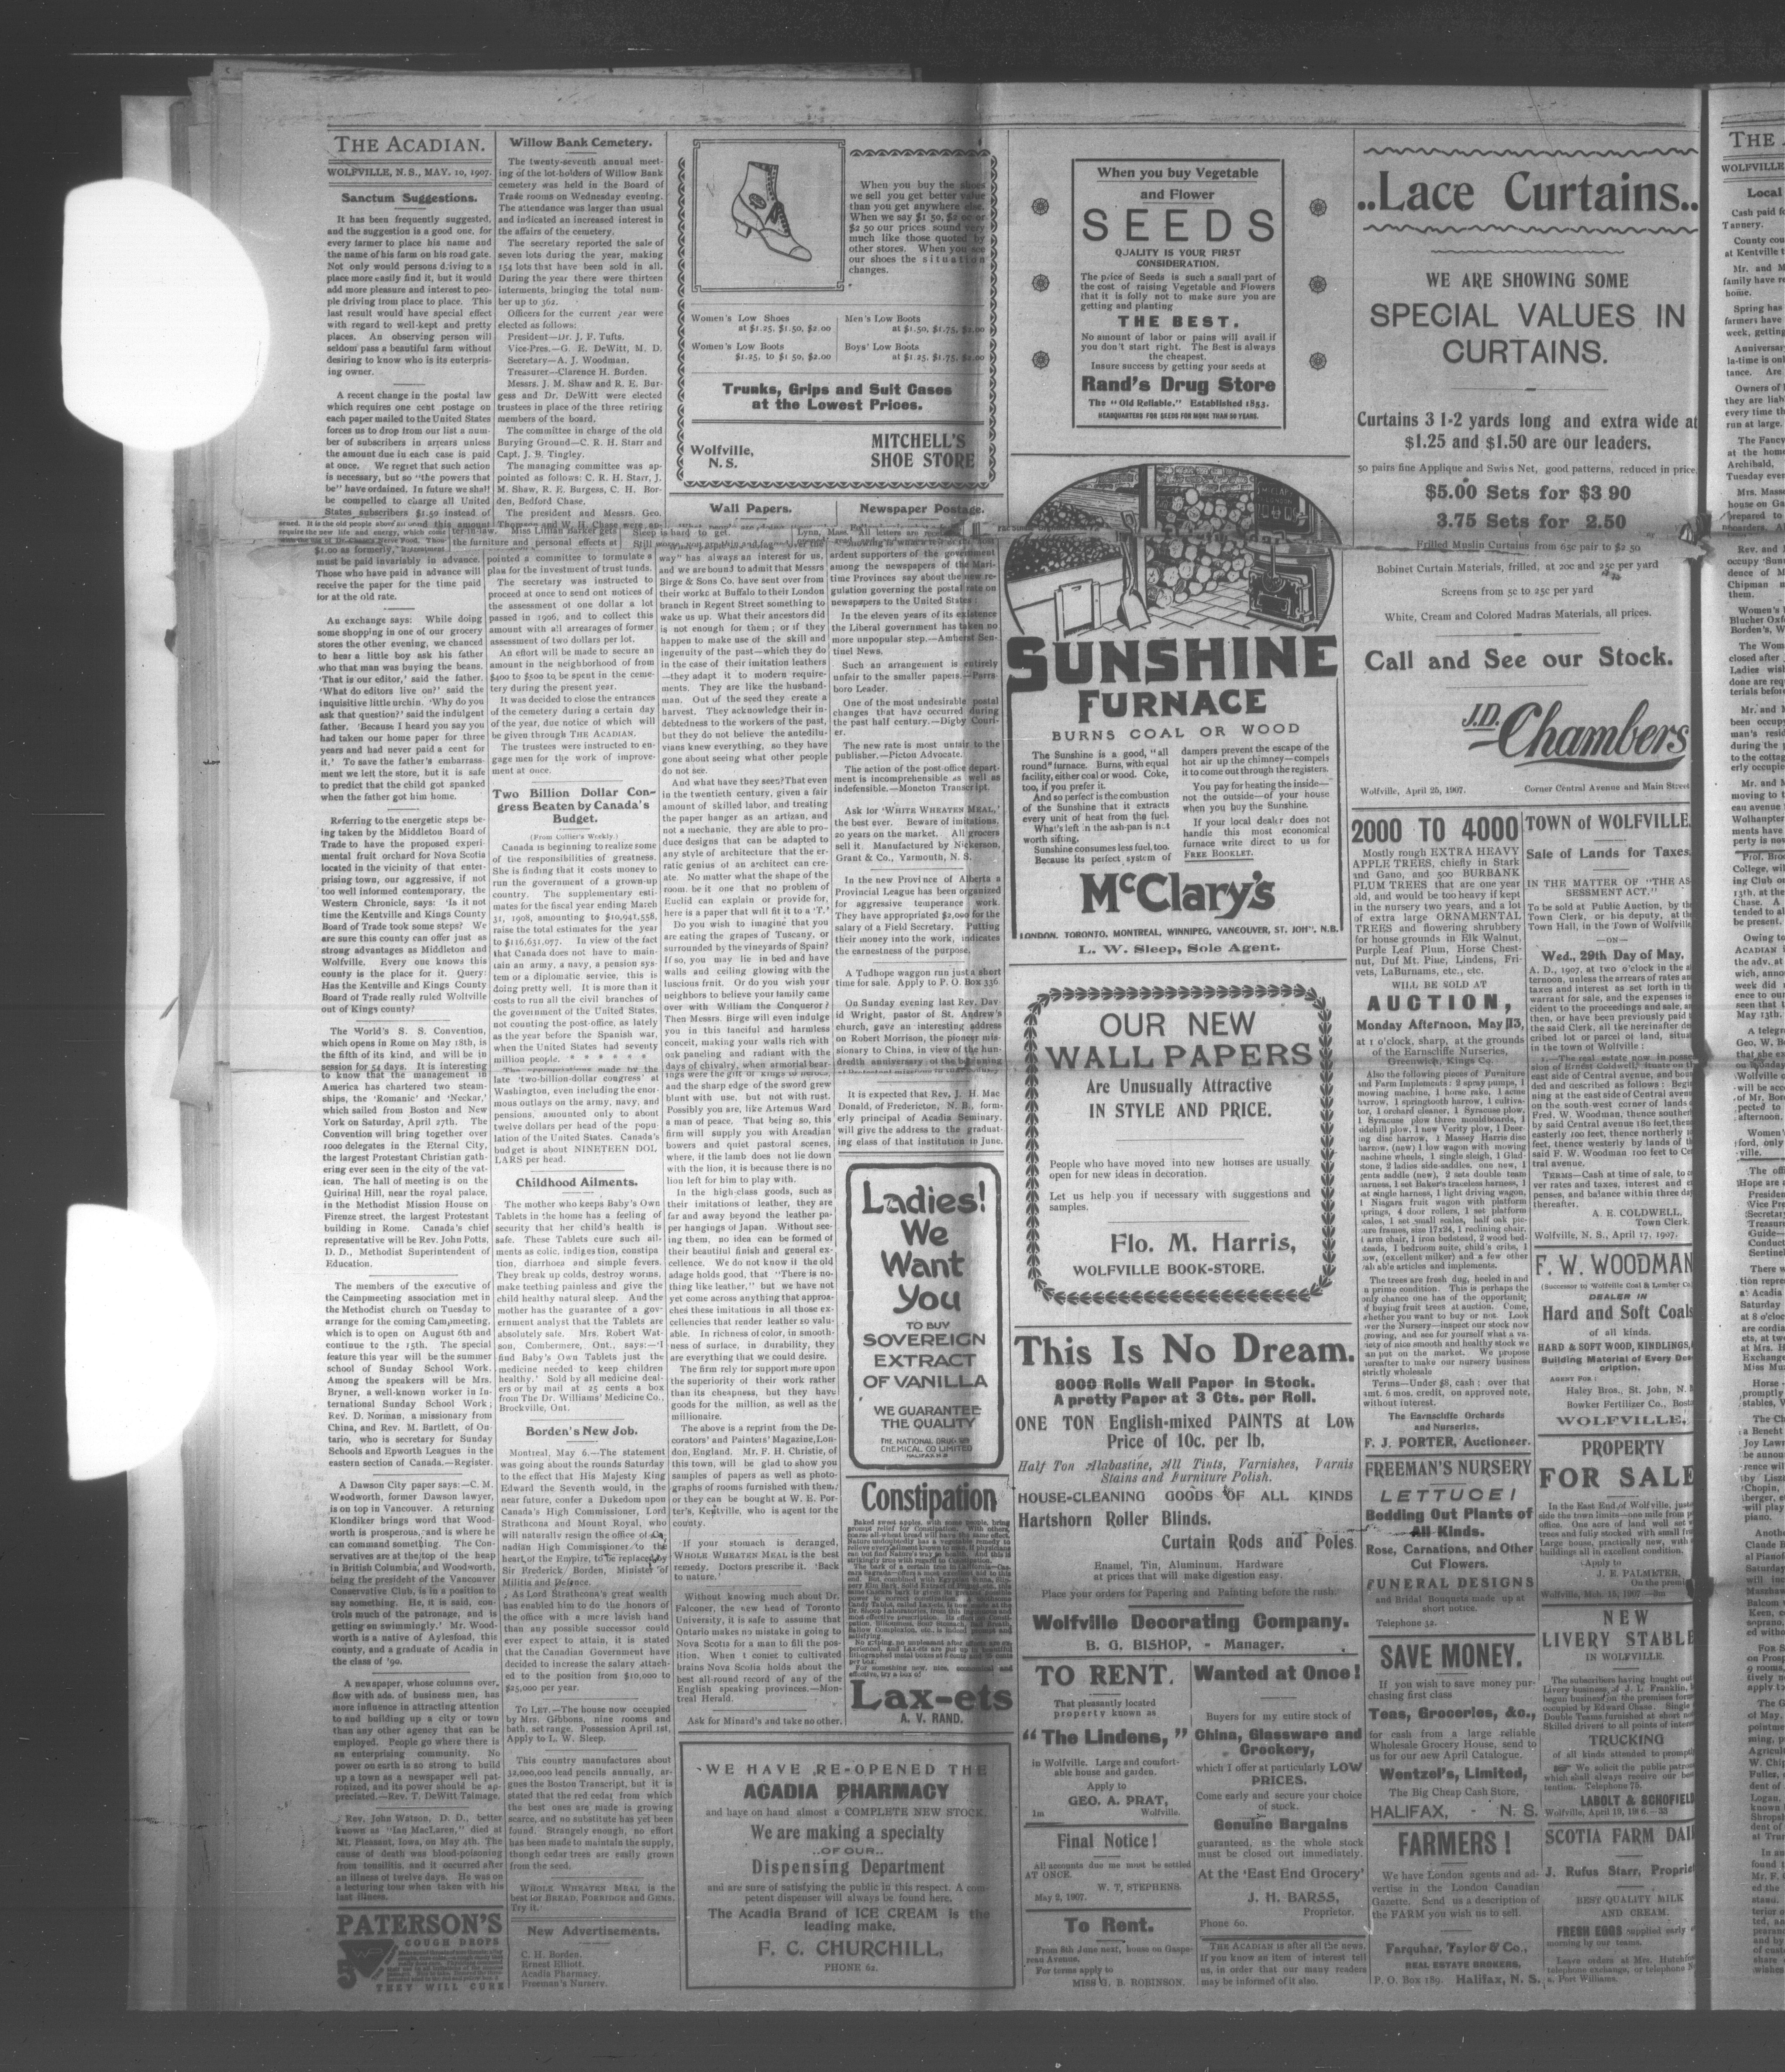 THE ACADIAN.
WOLFVILLE, N. S., MAY. 10, 1907.
Sanctum Suggestions.
It has been frequently suggested,
and the suggestion is a good one, for
every farmer to place his name and
the name of his farm on his road gate.
Not only would persons driving to a
place more easily find it, but it would
add more pleasure and interest to peo-
ple driving from place to place. This
last result would have special effect
with regard to well-kept and pretty
places. An observing person will
seldom pass a beautiful farm without
desiring to know who is its enterpris-
ing owner.
A recent change in the postal law
which requires one cent postage on
each paper mailed to the United States
forces us to drop from our list a num-
ber of subscribers in arrears unless
the amount due in each case is paid
at once. We regret that such action
is necessary, but so "the powers that
be" have ordained. In future we shall
be compelled to charge all United
States subscribers $1.50 instead of
$1.00 as formerly,
must be paid invariably in advance.
Those who have paid in advance will
receive the paper for the time paid
for at the old rate.
An exchange says: While doing
some shopping in one of our grocery
stores the other evening, we chanced
to hear a little boy ask his father
who that man was buying the beans.
'That is our editor,' said the father.
'What do editors live on?' said the
inquisitive little urchin. 'Why do you
ask that question?' said the indulgent
father. 'Because I heard you say you
had taken our home paper for three
years and had never paid a cent for
it.' To save the father's embarrass-
ment we left the store, but it is safe
to predict that the child got spanked
when the father got him home.
Referring to the energetic steps be-
ing taken by the Middleton Board of
Trade to have the proposed experi-
mental fruit orchard for Nova Scotia
located in the vicinity of that enter-
prising town, our aggressive, if not
too well informed contemporary, the
Western Chronicle, says: 'Is it not
time the Kentville and Kings County
Board of Trade took some steps? We
are sure this county can offer just as
strong advantages as Middleton and
Wolfville. Every one knows this
county is the place for it. Query:
Has the Kentville and Kings County
Board of Trade really ruled Wolfville
out of Kings county?
The World's S. S. Convention,
which opens in Rome on May 18th, is
the fifth of its kind, and will be in
session for 54 days. It is interesting
to know that the management in
America has chartered two steam-
ships, the 'Romanic' and 'Neckar,'
which sailed from Boston and New
York on Saturday, April 27th. The
Convention will bring together over
1000 delegates in the Eternal City,
the largest Protestant Christian gath-
ering ever seen in the city of the vat-
ican. The hall of meeting is on the
Quirinal Hill, near the royal palace,
in the Methodist Mission House on
Firenze street, the largest Protestant
building in Rome. Canada's chief
representative will be Rev. John Potts,
D. D., Methodist Superintendent of
Education.
The members of the executive of
the Campmeeting association met in
the Methodist church on Tuesday to
arrange for the coming Campmeeting,
which is to open on August 6th and
continue to the 15th. The special
feature this year will be the summer
school of Sunday School Work.
Among the speakers will be Mrs.
Bryner, a well-known worker in In-
ternational Sunday School Work;
Rev. D. Norman, a missionary from
China, and Rev. M. Bartlett, of On-
tario, who is secretary for Sunday
Schools and Epworth Leagues in the
eastern section of Canada.—Register.
A Dawson City paper says:—C. M.
Woodworth, former Dawson lawyer,
is on top in Vancouver. A returning
Klondiker brings word that Wood-
worth is prosperous, and is where he
can command something. The Con-
servatives are at the top of the heap
in British Columbia, and Woodworth,
being the president of the Vancouver
Conservative Club, is in a position to
say something. He, it is said, con-
trols much of the patronage, and is
getting on swimmingly.' Mr. Wood-
worth is a native of Aylesford, this
county, and a graduate of Acadia in
the class of '90.
A newspaper, whose columns over-
flow with ads. of business men, has
more influence in attracting attention
to and building up a city or town
than any other agency that can be
employed. People go where there is
an enterprising community. No
power on earth is so strong to build
up a town as a newspaper well pat-
ronized, and its power should be ap-
preciated.—Rev. T. DeWitt Talmage.
Rev. John Watson, D. D., better
known as "Ian MacLaren," died at
Mt. Pleasant, Iowa, on May 4th. The
cause of death was blood-poisoning
from tonsilitis, and it occurred after
an illness of twelve days. He was on
a lecturing tour when taken with his
last illness.
PATERSON'S
COUGH DROPS
THEY WILL CURE
Willow Bank Cemetery.
The twenty-seventh annual meet-
ing of the lot-holders of Willow Bank
cemetery was held in the Board of
Trade rooms on Wednesday evening.
The attendance was larger than usual
and indicated an increased interest in
the affairs of the cemetery.
The secretary reported the sale of
seven lots during the year, making
154 lots that have been sold in all.
During the year there were thirteen
interments, bringing the total num-
ber up to 362.
Officers for the current year were
elected as follows:
President—Dr. J. F. Tufts.
Vice-Pres.—G. E. DeWitt, M. D.
Secretary—A. J. Woodman.
Treasurer—Clarence H. Borden.
Messrs. J. M. Shaw and R. E. Bur-
gess and Dr. DeWitt were elected
trustees in place of the three retiring
members of the board.
The committee in charge of the old
Burying Ground—C. R. H. Starr and
Capt. J. B. Tingley.
The managing committee was ap-
pointed as follows: C. R. H. Starr, J.
M. Shaw, R. E. Burgess, C. H. Bor-
den, Bedford Chase.
The president and Messrs. Geo.
Thomson and W. H. Chase were ap-
pointed a committee to formulate a
plan for the investment of trust funds.
The secretary was instructed to
proceed at once to send out notices of
the assessment of one dollar a lot
passed in 1906, and to collect this
amount with all arrearages of former
assessment of two dollars per lot.
An effort will be made to secure an
amount in the neighborhood of from
$400 to $500 to be spent in the ceme-
tery during the present year.
It was decided to close the entrances
of the cemetery during a certain day
of the year, due notice of which will
be given through THE ACADIAN.
The trustees were instructed to en-
gage men for the work of improve-
ment at once.
Two Billion Dollar Con-
gress Beaten by Canada's
Budget.
(From Collier's Weekly.)
Canada is beginning to realize some
of the responsibilities of greatness.
She is finding that it costs money to
run the government of a grown-up
country. The supplementary esti-
mates for the fiscal year ending March
31, 1908, amounting to $10,941,558,
raise the total estimates for the year
to $116,631,077. In view of the fact
that Canada does not have to main-
tain an army, a navy, a pension sys-
tem or a diplomatic service, this is
doing pretty well. It is more than it
costs to run all the civil branches of
the government of the United States,
not counting the post-office, as lately
as the year before the Spanish war,
when the United States had seventy
million people. * * * * * *
The appropriations made by the
late 'two-billion-dollar congress' at
Washington, even including the enor-
mous outlays on the army, navy, and
pensions, amounted only to about
twelve dollars per head of the popu-
lation of the United States. Canada's
budget is about NINETEEN DOL
LARS per head.
Childhood Ailments.
The mother who keeps Baby's Own
Tablets in the home has a feeling of
security that her child's health is
safe. These Tablets cure such ail-
ments as colic, indigestion, constipa
tion, diarrhoea and simple fevers.
They break up colds, destroy worms,
make teething painless and give the
child healthy natural sleep. And the
mother has the guarantee of a gov-
ernment analyst that the Tablets are
absolutely safe. Mrs. Robert Wat-
son, Combermere, Ont., says:—'I
find Baby's Own Tablets just the
medicine needed to keep children
healthy.' Sold by all medicine deal-
ers or by mail at 25 cents a box
from The Dr. Williams' Medicine Co.,
Brockville, Ont.
Borden's New Job.
Montreal, May 6.—The statement
was going about the rounds Saturday
to the effect that His Majesty King
Edward the Seventh would, in the
near future, confer a Dukedom upon
Canada's High Commissioner, Lord
Strathcona and Mount Royal, who
will naturally resign the office of Ca-
nadian High Commissioner to the
heart of the Empire, to be replaced by
Sir Frederick Borden, Minister of
Militia and Defence.
As Lord Strathcona's great wealth
has enabled him to do the honors of
the office with a more lavish hand
than any possible successor could
ever expect to attain, it is stated
that the Canadian Government have
decided to increase the salary attach-
ed to the position from $10,000 to
$25,000 per year.
TO LET.—The house now occupied
by Mrs. Gibbons, nine rooms and
bath, set range. Possession April 1st,
Apply to L. W. Sleep.
This country manufactures about
32,000,000 lead pencils annually, ar-
gues the Boston Transcript, but it is
stated that the red cedar from which
the best ones are made is growing
scarce, and no substitute has yet been
found. Strangely enough, no effort
has been made to maintain the supply,
though cedar trees are easily grown
from the seed.
WHOLE WHEATEN MEAL is the
best for BREAD, PORRIDGE and GEMS.
Try it.'
New Advertisements.
C. H. Borden.
Ernest Elliott.
Acadia Pharmacy.
Freeman's Nursery.
When you buy the shoes
we sell you get better value
than you get anywhere else.
When we say $1 50, $2 00 or
$2 50 our prices sound very
much like those quoted by
other stores. When you see
our shoes the situation
changes.
Women's Low Shoes
at $1.25, $1.50, $2.00
Women's Low Boots
$1.25, to $1 50, $2.00
Men's Low Boots
at $1.50, $1.75, $2.00
Boys' Low Boots
at $1.25, $1.75, $2.00
Trunks, Grips and Suit Cases
at the Lowest Prices.
Wolfville,
N. S.
MITCHELL'S
SHOE STORE
Wall Papers.
way" has always an interest for us,
and we are bound to admit that Messrs
Birge & Sons Co. have sent over from
their works at Buffalo to their London
branch in Regent Street something to
wake us up. What their ancestors did
is not enough for them; or if they
happen to make use of the skill and
ingenuity of the past—which they do
in the case of their imitation leathers
—they adapt it to modern require-
ments. They are like the husband-
man. Out of the seed they create a
harvest. They acknowledge their in-
debtedness to the workers of the past,
but they do not believe the antedilu-
vians knew everything, so they have
gone about seeing what other people
do not see.
And what have they seen? That even
in the twentieth century, given a fair
amount of skilled labor, and treating
the paper hanger as an artizan, and
not a mechanic, they are able to pro-
duce designs that can be adapted to
any style of architecture that the er-
ratic genius of an architect can cre-
ate. No matter what the shape of the
room, be it one that no problem of
Euclid can explain or provide for,
here is a paper that will fit it to a 'T.'
Do you wish to imagine that you
are eating the grapes of Tuscany, or
surrounded by the vineyards of Spain?
If so, you may lie in bed and have
walls and ceiling glowing with the
luscious fruit. Or do you wish your
neighbors to believe your family came
over with William the Conqueror?
Then Messrs. Birge will even indulge
you in this fanciful and harmless
conceit, making your walls rich with
oak paneling and radiant with the
days of chivalry, when armorial bear-
ings were the gift of kings
and the sharp edge of the sword grew
blunt with use, but not with rust.
Possibly you are, like Artemus Ward
a man of peace. That being so, this
firm will supply you with Arcadian
bowers and quiet pastoral scenes,
where, if the lamb does not lie down
with the lion, it is because there is no
lion left for him to play with.
In the high-class goods, such as
their imitations of leather, they are
far and away beyond the leather pa-
per hangings of Japan. Without see-
ing them, no idea can be formed of
their beautiful finish and general ex-
cellence. We do not know if the old
adage holds good, that "There is no-
thing like leather," but we have not
yet come across anything that approa-
ches these imitations in all those ex-
cellencies that render leather so valu-
able. In richness of color, in smooth-
ness of surface, in durability, they
are everything that we could desire.
The firm rely for support more upon
the superiority of their work rather
than its cheapness, but they have
goods for the million, as well as the
millionaire.
The above is a reprint from the De-
corators' and Painters' Magazine, Lon-
don, England. Mr. F. H. Christie, of
this town, will be glad to show you
samples of papers as well as photo-
graphs of rooms furnished with them,
or they can be bought at W. E. Por-
ter's, Kentville, who is agent for the
county.
'If your stomach is deranged,
WHOLE WHEATEN MEAL is the best
remedy. Doctors prescribe it. 'Back
to nature.'
Without knowing much about Dr.
Falconer, the new head of Toronto
University, it is safe to assume that
Ontario makes no mistake in going to
Nova Scotia for a man to fill the pos-
ition. When it comes to cultivated
brains Nova Scotia holds about the
best all-round record of any of the
English speaking provinces.—Mon-
treal Herald.
Ask for Minard's and take no other.
Newspaper Postage.
ardent supporters of the government
among the newspapers of the Mari-
time Provinces say about the new re-
gulation governing the postal rate on
newspapers to the United States:
In the eleven years of its existence
the Liberal government has taken no
more unpopular step.—Amherst Sen-
tinel News.
Such an arrangement is entirely
unfair to the smaller papers.—Parrs-
boro Leader.
One of the most undesirable postal
changes that have occurred during
the past half century.—Digby Couri-
er.
The new rate is most unfair to the
publisher.—Pictou Advocate.
The action of the post-office depart-
ment is incomprehensible as well as
indefensible.—Moncton Transcript.
Ask for 'WHITE WHEATEN MEAL,'
the best ever. Beware of imitations.
20 years on the market. All grocers
sell it. Manufactured by Nickerson,
Grant & Co., Yarmouth, N. S.
In the new Province of Alberta a
Provincial League has been organized
for aggressive temperance work.
They have appropriated $2,000 for the
salary of a Field Secretary. Putting
their money into the work, indicates
the earnestness of the purpose.
A Tudhope waggon run just a short
time for sale. Apply to P. O. Box 336.
On Sunday evening last Rev. Dav-
id Wright, pastor of St. Andrew's
church, gave an interesting address
on Robert Morrison, the pioneer mis-
sionary to China, in view of the hun-
dredth anniversary of the beginning
It is expected that Rev. J. H. Mac
Donald, of Fredericton, N. B., form-
erly principal of Acadia Seminary,
will give the address to the graduat-
ing class of that institution in June.
Ladies!
We
Want
You
TO BUY
SOVEREIGN
EXTRACT
OF VANILLA
WE GUARANTEE
THE QUALITY
THE NATIONAL DRUG AND
CHEMICAL CO LIMITED
HALIFAX N S
Constipation
Lax-ets
A. V. RAND.
WE HAVE RE-OPENED THE
ACADIA PHARMACY
and have on hand almost a COMPLETE NEW STOCK.
We are making a specialty
..OF OUR..
Dispensing Department
and are sure of satisfying the public in this respect. A com-
petent dispenser will always be found here.
The Acadia Brand of ICE CREAM is the
leading make.
F. C. CHURCHILL,
PHONE 62.
When you buy Vegetable
and Flower
SEEDS
QUALITY IS YOUR FIRST
CONSIDERATION.
The price of Seeds is such a small part of
the cost of raising Vegetable and Flowers
that it is folly not to make sure you are
getting and planting
THE BEST.
No amount of labor or pains will avail if
you don't start right. The Best is always
the cheapest.
Insure success by getting your seeds at
Rand's Drug Store
The "Old Reliable." Established 1853.
HEADQUARTERS FOR SEEDS FOR MORE THAN 50 YEARS.
SUNSHINE
FURNACE
BURNS COAL OR WOOD
The Sunshine is a good, "all
round" furnace. Burns, with equal
facility, either coal or wood. Coke,
too, if you prefer it.
And so perfect is the combustion
of the Sunshine that it extracts
every unit of heat from the fuel.
What's left in the ash-pan is not
worth sifting.
Sunshine consumes less fuel, too.
Because its perfect system of
dampers prevent the escape of the
hot air up the chimney—compels
it to come out through the registers.
You pay for heating the inside—
not the outside—of your house
when you buy the Sunshine.
If your local dealer does not
handle this most economical
furnace write direct to us for
FREE BOOKLET.
McClary's
LONDON, TORONTO, MONTREAL, WINNIPEG, VANCOUVER, ST. JOHN, N.B.
L. W. Sleep, Sole Agent.
OUR NEW
WALL PAPERS
Are Unusually Attractive
IN STYLE AND PRICE.
People who have moved into new houses are usually
open for new ideas in decoration.
Let us help you if necessary with suggestions and
samples.
Flo. M. Harris,
WOLFVILLE BOOK-STORE.
This Is No Dream.
8000 Rolls Wall Paper in Stock.
A pretty Paper at 3 Cts. per Roll.
ONE TON English-mixed PAINTS at Low
Price of 10c. per lb.
Half Ton Alabastine, All Tints, Varnishes, Varnis
Stains and Furniture Polish.
HOUSE-CLEANING GOODS OF ALL KINDS
Hartshorn Roller Blinds.
Curtain Rods and Poles
Enamel, Tin, Aluminum, Hardware
at prices that will make digestion easy.
Place your orders for Papering and Painting before the rush.
Wolfville Decorating Company.
B. G. BISHOP, - Manager.
TO RENT.
That pleasantly located
property known as
"The Lindens,"
in Wolfville. Large and comfort-
able house and garden.
Apply to
GEO. A. PRAT,
1m Wolfville.
Final Notice!
All accounts due me must be settled
AT ONCE.
W. T. STEPHENS.
May 2, 1907.
To Rent.
From 8th June next, house on Gaspe-
reau Avenue.
For terms apply to
MISS G. B. ROBINSON.
Wanted at Once!
Buyers for my entire stock of
China, Glassware and
Crockery,
which I offer at particularly LOW
PRICES.
Come early and secure your choice
of stock.
Genuine Bargains
guaranteed, as the whole stock
must be closed out immediately.
At the 'East End Grocery'
J. H. BARSS,
Proprietor.
Phone 60.
THE ACADIAN is after all the news.
If you know an item of interest tell
us, in order that our many readers
may be informed of it also.
..Lace Curtains..
WE ARE SHOWING SOME
SPECIAL VALUES IN
CURTAINS.
Curtains 3 1-2 yards long and extra wide at
$1.25 and $1.50 are our leaders.
50 pairs fine Applique and Swiss Net, good patterns, reduced in price.
$5.00 Sets for $3 90
3.75 Sets for 2.50
Frilled Muslin Curtains from 65c pair to $2 50
Bobinet Curtain Materials, frilled, at 20c and 25c per yard
Screens from 5c to 25c per yard
White, Cream and Colored Madras Materials, all prices.
Call and See our Stock.
J.D. Chambers
Wolfville, April 25, 1907. Corner Central Avenue and Main Street
2000 TO 4000
Mostly rough EXTRA HEAVY
APPLE TREES, chiefly in Stark
and Gano, and 500 BURBANK
PLUM TREES that are one year
old, and would be too heavy if kept
in the nursery two years, and a lot
of extra large ORNAMENTAL
TREES and flowering shrubbery
for house grounds in Elk Walnut,
Purple Leaf Plum, Horse Chest-
nut, Duf Mt. Pine, Lindens, Fri-
vets, LaBurnams, etc., etc.
WILL BE SOLD AT
AUCTION,
Monday Afternoon, May 13,
at 1 o'clock, sharp, at the grounds
of the Earnscliffe Nurseries,
Greenwich, Kings Co.
Also the following pieces of Furniture
and Farm Implements: 2 spray pumps, 1
mowing machine, 1 horse rake, 1 acme
harrow, 1 springtooth harrow, 1 cultiva-
tor, 1 orchard cleaner, 1 Syracuse plow,
1 Syracuse plow three mouldboards, 1
sidehill plow, 1 new Verity plow, 1 Deer-
ing disc harrow, 1 Massey Harris disc
harrow, (new) 1 low wagon with mowing
machine wheels, 1 single sleigh, 1 Glad-
stone, 2 ladies side-saddles, one new, 1
gents saddle (new), 2 sets double team
harness, 1 set Baker's traceless harness, 1
set single harness, 1 light driving wagon,
1 Niagara fruit wagon with platform
springs, 4 door rollers, 1 set platform
scales, 1 set small scales, half oak pic-
ure frames, size 17x24, 1 reclining chair,
1 arm chair, 1 iron bedstead, 2 wood bed-
steads, 1 bedroom suite, child's cribs, 1
cow, (excellent milker) and a few other
valuable articles and implements.
The trees are fresh dug, heeled in and
n prime condition. This is perhaps the
only chance one has of the opportunit
f buying fruit trees at auction. Come,
whether you want to buy or not. Look
over the Nursery—inspect our stock now
growing, and see for yourself what a va-
iety of nice smooth and healthy stock we
an put on the market. We propose
hereafter to make our nursery business
strictly wholesale
Terms—Under $8, cash; over that
amt. 6 mos. credit, on approved note,
without interest.
The Earnscliffe Orchards
and Nurseries.
F. J. PORTER, Auctioneer.
FREEMAN'S NURSERY
LETTUCE!
Bedding Out Plants of
All Kinds.
Rose, Carnations, and Other
Cut Flowers.
FUNERAL DESIGNS
and Bridal Bouquets made up at
short notice.
Telephone 32.
SAVE MONEY.
If you wish to save money pur-
chasing first class
Teas, Groceries, &c.,
for cash from a large reliable
Wholesale Grocery House, send to
us for our new April Catalogue.
Wentzel's, Limited,
The Big Cheap Cash Store,
HALIFAX, - N. S.
FARMERS!
We have London agents and ad-
vertise in the London Canadian
Gazette. Send us a description of
the FARM you wish us to sell.
Farquhar, Taylor & Co.,
REAL ESTATE BROKERS.
P. O. Box 189. Halifax, N. S.
TOWN of WOLFVILLE.
Sale of Lands for Taxes.
IN THE MATTER OF "THE AS-
SESSMENT ACT."
To be sold at Public Auction, by the
Town Clerk, or his deputy, at the
Town Hall, in the Town of Wolfville
—ON—
Wed., 29th Day of May,
A. D., 1907, at two o'clock in the af
ternoon, unless the arrears of rates an
taxes and interest as set forth in th
warrant for sale, and the expenses i
cident to the proceedings and sale, an
then, or have been previously paid
the said Clerk, all the hereinafter de
cribed lot or parcel of land, situat
in the town of Wolfville:
1.—The real estate now in posse
sion of Ernest Coldwell, situate on the
east side of Central avenue, and bou
ded and described as follows: Begin
ning at the east side of Central avenu
on the south-west corner of lands
Fred. W. Woodman, thence souther
by said Central avenue 180 feet, then
easterly 100 feet, thence northerly
feet, thence westerly by lands of th
said F. W. Woodman 100 feet to Ce
tral avenue.
TERMS—Cash at time of sale, to c
ver rates and taxes, interest and e
penses, and balance within three day
thereafter.
A. E. COLDWELL,
Town Clerk.
Wolfville, N. S., April 17, 1907.
F. W. WOODMAN
(Successor to Wolfville Coal & Lumber Co.
DEALER IN
Hard and Soft Coals
of all kinds.
HARD & SOFT WOOD, KINDLINGS,
Building Material of Every Des-
cription.
AGENT FOR:
Haley Bros., St. John, N.
Bowker Fertilizer Co., Bosto
WOLFVILLE,
PROPERTY
FOR SALE
In the East End of Wolfville, just
side the town limits—one mile from p
office. One acre of land well set
trees and fully stocked with small fru
Large house, practically new, with
buildings all in excellent condition.
Apply to
J. E. PALMETER,
On the premi
Wolfville, Mch. 15, 1907
NEW
LIVERY STABLE
IN WOLFVILLE.
The subscribers having bought out
Livery business of J. L. Franklin,
begun business on the premises form
occupied by Edward Chase. Single
Double Teams furnished at short no
Skilled drivers to all points of intere
TRUCKING
of all kinds attended to promptl
We solicit the public patron
which shall always receive our be
tention. Telephone 75.
LABOLT & SCHOFIELD
Wolfville, April 19, 1906.—33
SCOTIA FARM DAI
J. Rufus Starr, Proprie
BEST QUALITY MILK
AND CREAM.
FRESH EGGS supplied early
morning by our teams.
Leave orders at Mrs. Hutchin
telephone exchange, or telephone N
8, Port Williams.